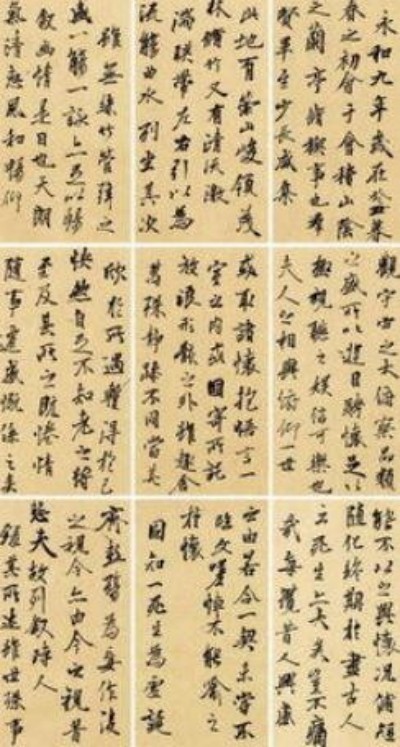 永和九年歲在癸丑暮
春之初會于會稽山陰
之蘭亭脩禊事也羣
賢畢至少長咸集
此地有崇山峻領茂
林脩竹又有清流激
湍暎帶左右引以為
流觴曲水列坐其次
雖無絲竹管弦之
盛一觴一詠亦足以暢
敘幽情是日也天朗
氣清惠風和暢仰
觀宇宙之大俯察品類
之盛所以遊目騁懷足以
極視聽之娛信可樂也
夫人之相與俯仰一世
或取諸懷抱悟言一
室之內或因寄所託
放浪形骸之外雖趣舍
萬殊靜躁不同當其
欣於所遇蹔得於己
快然自足不知老之將
至及其所之既惓情
隨事遷感慨係之矣
能不以之興懷況脩短
隨化終期於盡古人
云死生亦大矣豈不痛
哉每攬昔人興感
之由若合一契未嘗不
臨文嗟悼不能喻之
於懷
固知一死生為虛誕
齊彭殤為妄作後
之視今亦由今之視昔
悲夫故列敘時人
錄其所述雖世殊事